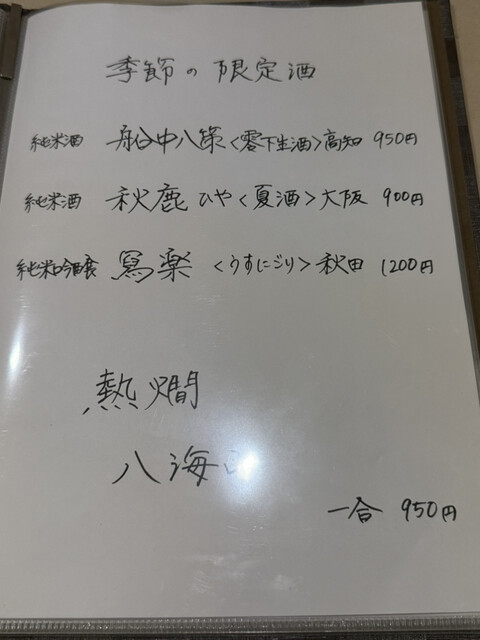 季節の限定酒
純米酒 船中八策<零下生酒>高知 950円
純米酒 秋鹿 ひや<夏酒>大阪 900円
純米吟醸 寫楽 <うすにごり>秋田 1200円
熱燗
八海
一合 950円